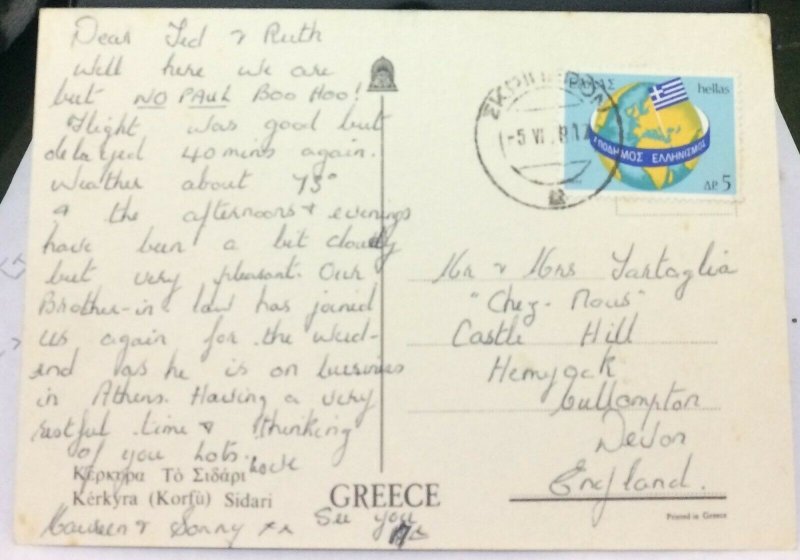 Dear Ted & Ruth
Well here we are
but NO PAUL BOO HOO!
Flight was good but
delayed 40 mins again.
Weather about 75°
& the afternoons & evenings
have been a bit cloudy
but very pleasant. Our
Brother-in law has joined
us again for the week-
end as he is on business
in Athens. Having a very
restful time & thinking
of you lots.
love
Maureen & Sonny xx See you
17th
Κέρκυρα Τὸ Σιδάρι
Kérkyra (Korfü) Sidari
GREECE
Printed in Greece
ΕΛΛΑΣ hellas
ΑΠΟΔΗΜΟΣ ΕΛΛΗΝΙΣΜΟΣ
ΔΡ. 5
Mr & Mrs Tartaglia
"Chez-Nous"
Castle Hill
Hemyock
Cullompton
Devon
England.